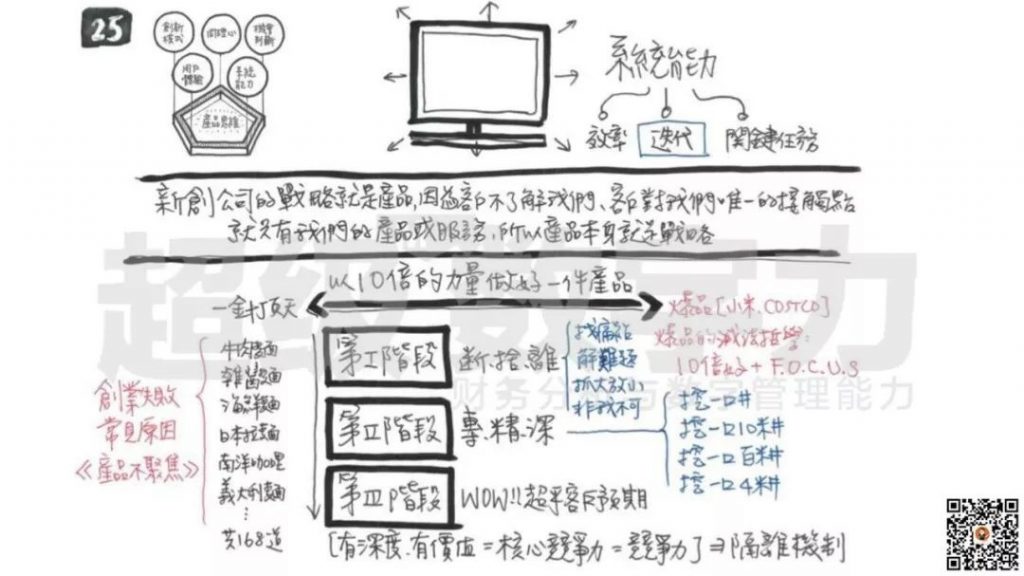 25
創新
模式
同理心
機會
判斷
用戶
體驗
系統
能力
產品思維
系統能力
效率
迭代
關鍵任務
新創公司的戰略就是產品,因為客戶不了解我們、客戶對我們唯一的接觸點
就只有我們的產品或服務,所以產品本身就是戰略
超级数字力
财务分析与数字管理能力
以10倍的力量做好一件產品
一針頂天
爆品[小米.COSTCO]
爆品的減法哲學:
10倍好+F.O.C.U.S
創業失敗
常見原因
《產品不聚焦》
牛肉麵
雜醬麵
海鮮麵
日本拉麵
南洋咖哩
義大利麵
⋮
共168道
第I階段
斷.捨.離
找痛點
解難題
抓大放小
非我不可
第II階段
專.精.深
挖一口井
挖一口10米井
挖一口百米井
挖一口4米井
第III階段
WOW!!超乎客戶預期
[有深度.有價值=核心競爭力=競爭力]⇒隔離機制